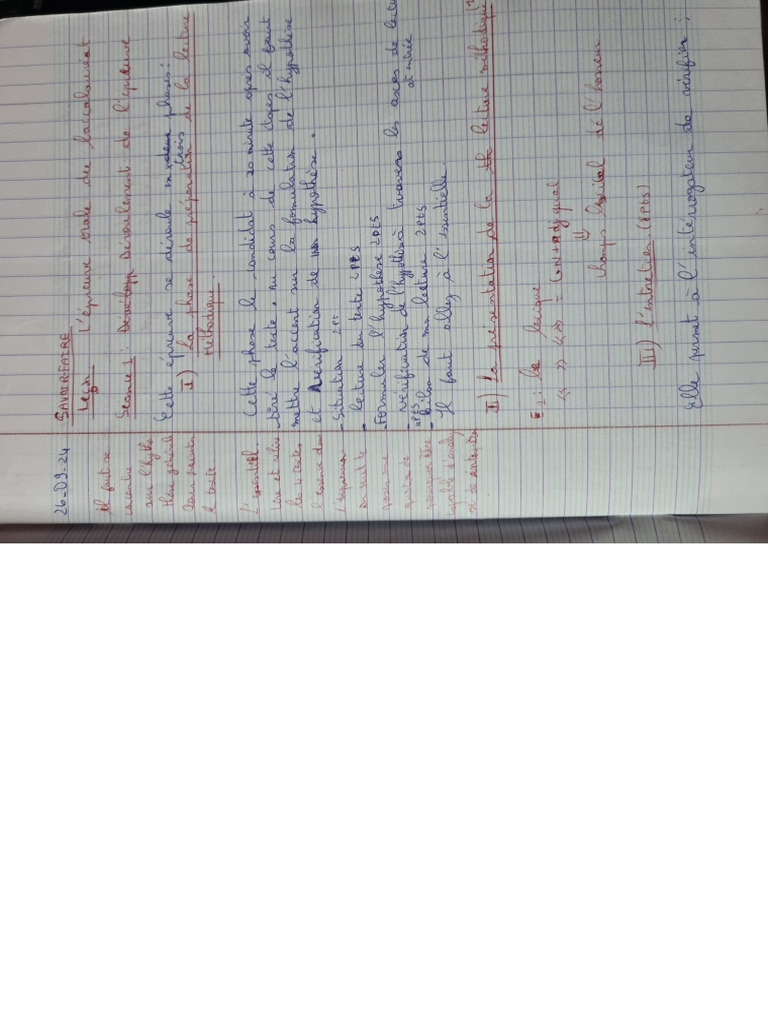 26-09-24
SAVOIR-FAIRE
Leçon : L'épreuve orale du baccalauréat
Séance 1 : Déroulement de l'épreuve
Cette épreuve se déroule en trois phases :
I) La phase de préparation de la lecture
Méthodique.
Cette phase le candidat à 20 minute après avoir
tiré le texte. Au cours de cette étapes il faut
mettre l'accent sur la formulation de l'hypothèse
et vérification de mon hypothèse.
- Situation 2Pt
- lecture du texte 2Pts
- Formuler l'hypothèse 2Pts
- vérification de l'hypothèse à travers les axes de lectu
et entrée
4Pts
- bilan de ma lecture 2Pts
Il faut allez à l'essentielle.
II) La présentation de la lecture méthodique
E1 : le lexique
" " " " = G.N + Adj qual
⇓
champs lexical de l'homme
III) L'entretien (8Pts)
Elle permet à l'interrogateur de vérifier ;
il faut se
sur l'hypo
thèse générale
le texte.
L'essentiel.
lire et relire
du texte